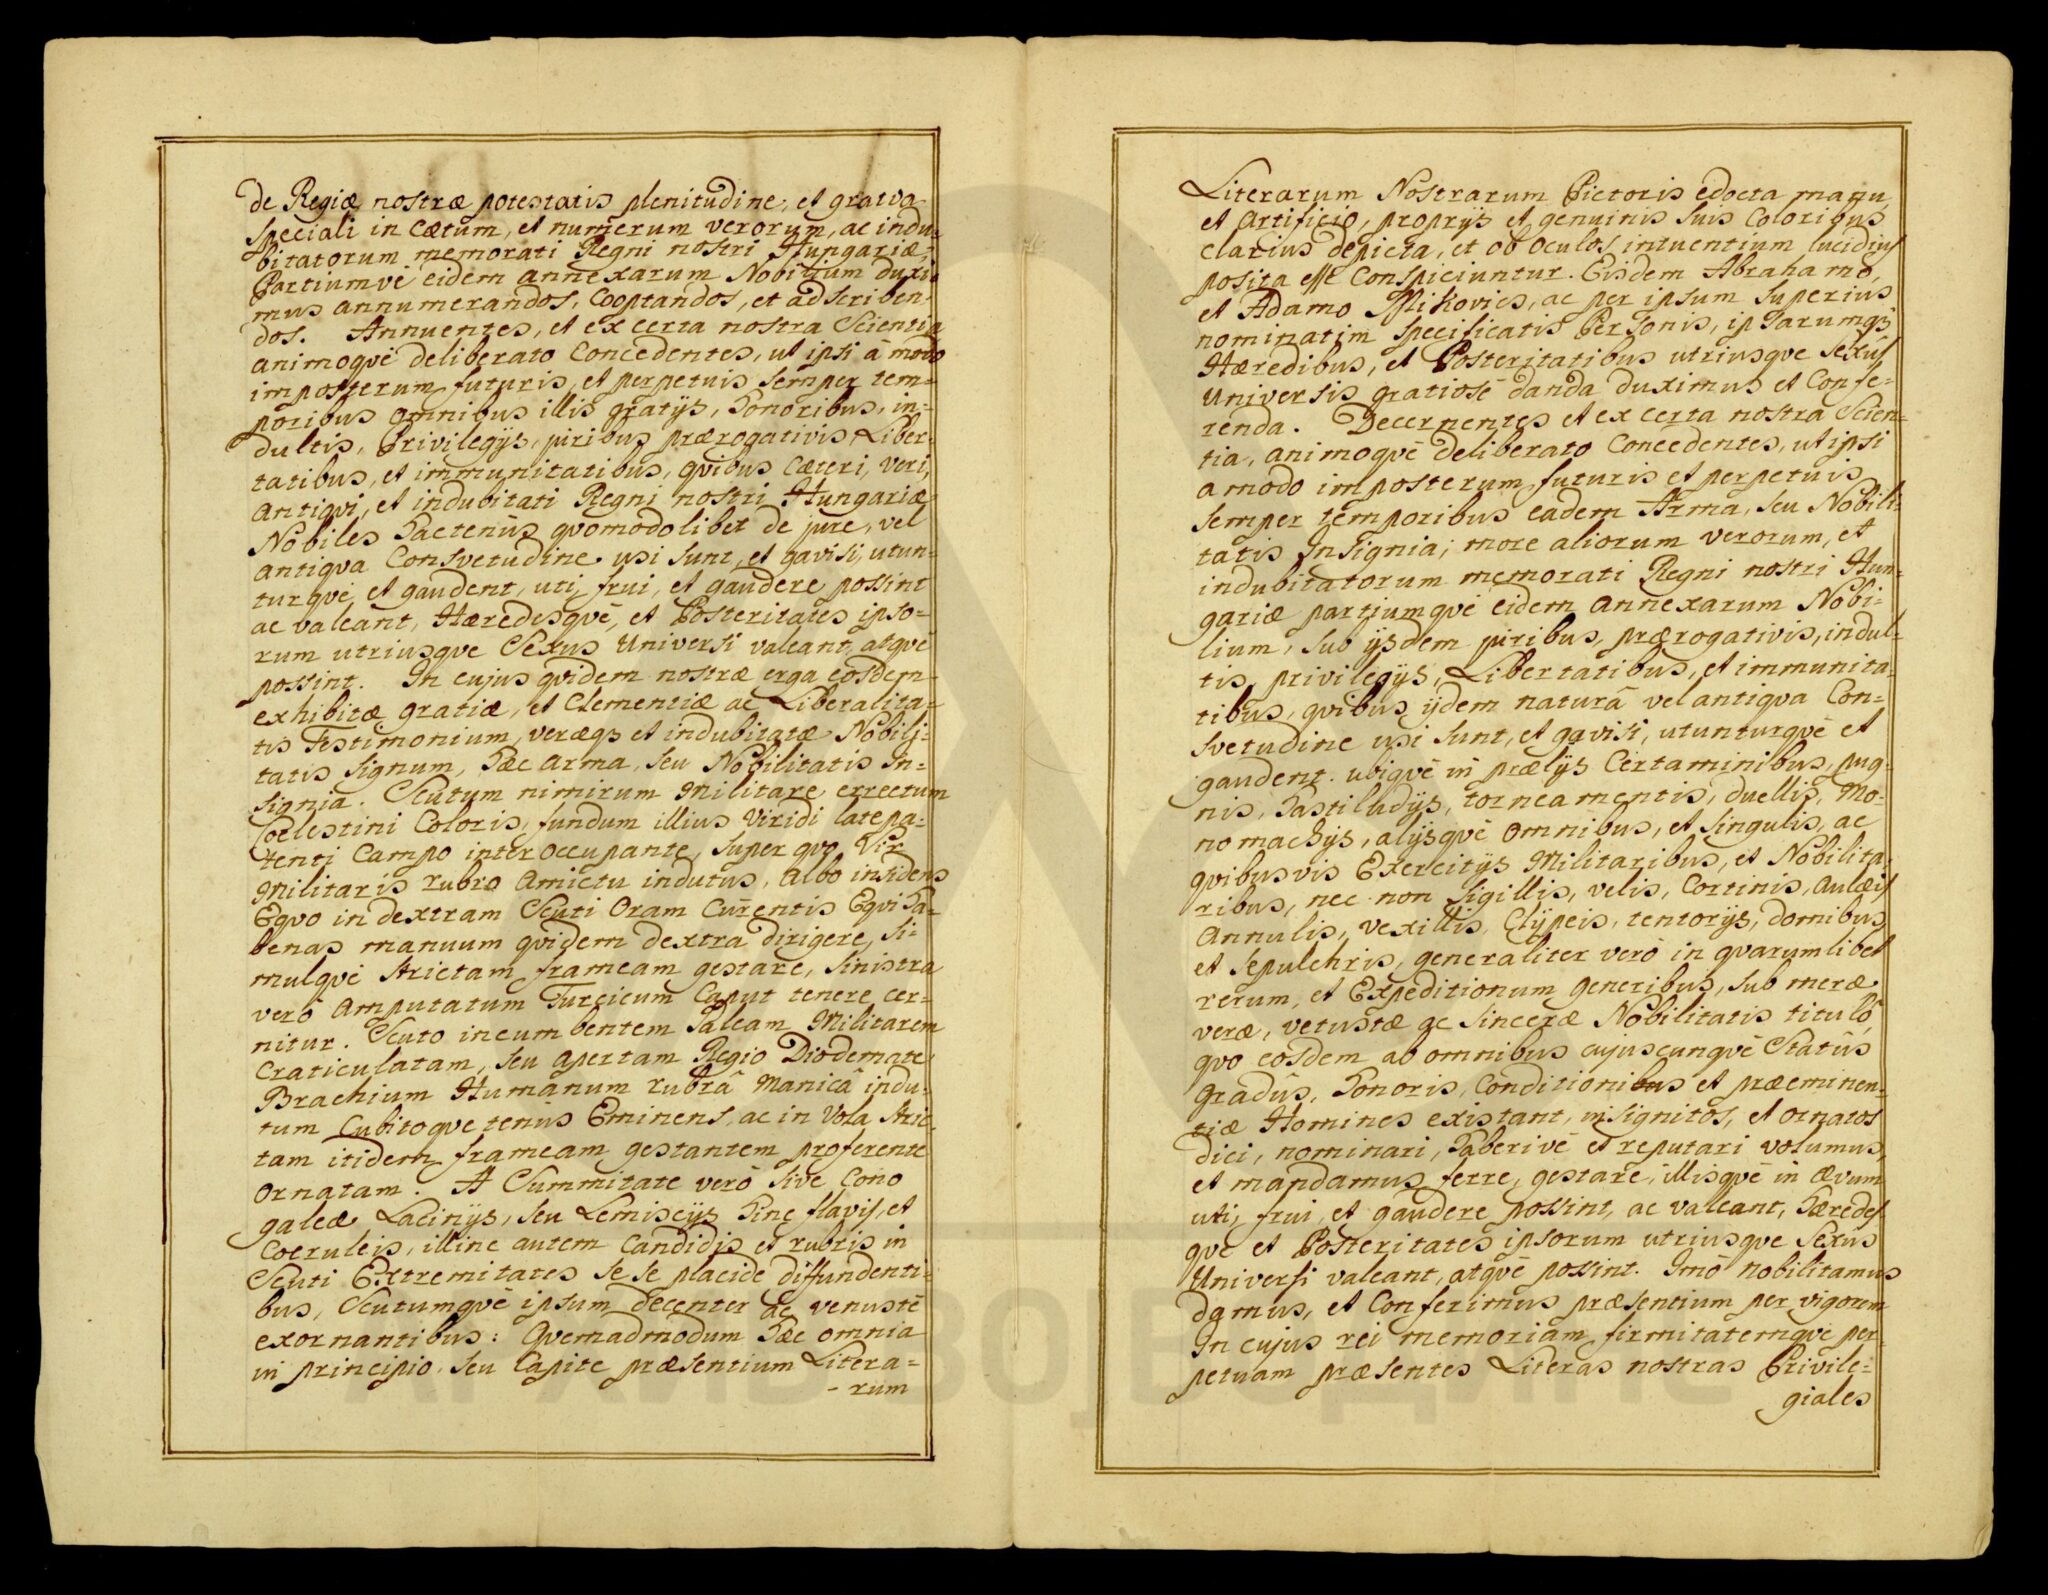 De Regiæ nostræ potestatis plenitudine, et gratia
speciali in Cætum, et numerum verorum, ac indu-
bitatorum memorati Regni nostri Hungariæ,
Partiumvè eidem annexarum Nobilium duxi-
mus annumerandos, Cooptandos, et adscriben-
dos. Annuentes, et ex certa nostra Scientia
animoqvè deliberato Concedentes, ut ipsi à modo
imposterum futuris, et perpetuis semper tem-
poribus omnibus illis gratijs, Honoribus, in-
dultis, Privilegijs, juribus prærogativis Liber-
tatibus, et immunitatibus, qvibus Cæteri, Veri,
Antiqvi, et indubitati Regni nostri Hungariæ
Nobiles Hactenùs qvomodolibet de jure, vel
antiqva Consvetudine usi sunt, et gavisi, utun-
turqvè, et gaudent, uti, frui, et gaudere possint
ac valeant, Hæredesqvè, et Posteritates ipso-
rum utriusqve Sexus Universi valeant, atqvè
possint. In cujus qvidem nostræ erga eosdem
exhibitæ gratiæ, et Clementiæ ac Liberalita-
tis Testimonium, veræqs et indubitatæ Nobili-
tatis signum, Hæc Arma, seu Nobilitatis In-
signia. Scutum nimirum Militare errectum
Coelestini Coloris, fundum illius Viridi late pa-
tenti Campo interoccupante, super qvo Vir
Militaris rubro Amictu indutus, Albo insidens
Eqvo in dextram Scuti Oram Currentis Eqvi Ha-
benas manuum qvidem dextra dirigere, si-
mulqvè strictam frameam gestare, sinistra
verò Amputatum Turcicum Caput tenere cer-
nitur. Scuto incumbentem Galeam Militarem
Craticulatam, seu apertam Regio Diodemate
Brachium Humanum rubrâ Manicâ indu-
tum Cubitoqve tenùs Eminens, ac in Vola stric-
tam itidem frameam gestantem proferente
Ornatam. A Summitate verò sive Cono
galeæ Lacinijs, seu Lemiscijs Hinc flavis, et
Coeruleis, illinc autem Candidis et rubris in
Scuti Extremitates sese placide diffundenti-
bus, Scutumqvè ipsum decenter ac venustè
exornantibus: Qvemadmodum Hæc omnia
in principio, seu Capite præsentium Litera-
- rum
Literarum Nostrarum Pictoris edocta manu,
et Artificio, proprijs et genuinis suis Coloribus
clarius depicta, et ob oculos intuentium lucidius
posita esse Conspiciuntur. Eisdem Abrahamo,
et Adamo, ac per ipsum superius
nominatim specificatis Personis, ipsarumqs
Hæredibus, et Posteritatibus utriusqve Sexûs
Universis gratiosè danda duximus et Confe-
renda. Decernentes et ex certa nostra Scien-
tia, animoqvè deliberato Concedentes, ut ipsi
a modo imposterum futuris et perpetuis
semper temporibus eadem Arma, seu Nobili-
tatis Insignia, more aliorum verorum, et
indubitatorum memorati Regni nostri Hun-
gariæ partiumqvè eidem annexarum Nobi-
lium, sub ijsdem juribus, prærogativis, indul-
tis, privilegijs, Libertatibus, et immunita-
tibus, qvibus ijdem naturâ vel antiqva Con-
svetudine usi sunt, et gavisi, utunturqvè et
gaudent. ubiqvè in prælijs Certaminibus, pug-
nis, Hastiludijs, torneamentis, duellis, Mo-
nomachijs, alijsqvè omnibus, et singulis, ac
qvibusvis Exercitijs Militaribus, et Nobilita-
ribus, nec non sigillis, velis, Cortinis, Aulæis
Annulis, Vexillis, Clÿpeis, tentorijs, domibus
et sepulchris, generaliter verò in qvarumlibet
rerum, et Expeditionum generibus, sub meræ
veræ, vetustæ ac sinceræ Nobilitatis titulô,
qvo eosdem ab omnibus cujuscunqvè Statûs
gradûs, Honoris, Conditionibus et præeminen-
tiæ Homines existant, insignitos, et ornatos
dici, nominari, Haberivè et reputari volumus,
et mandamus, ferre, gestare, illisqvè in Ævum
uti, frui, et gaudere possint, ac valeant, Hæredes-
qvè et Posteritates ipsorum utriusqve Sexus
Universi valeant, atqvè possint. Imò nobilitamus
damus, et Conferimus præsentium per vigorem
In cujus rei memoriam, firmitatemqvè per-
petuam præsentes Literas nostras Privile-
giales